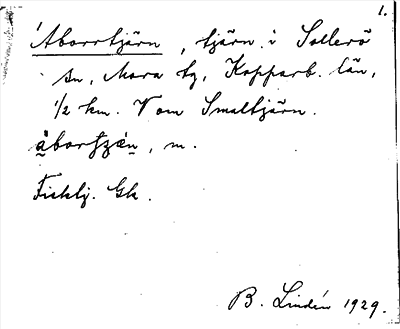 1.
Aborrtjärn, tjärn i Sollerö
sn, Mora tg, Kopparb. län,
1/2 km. V om Smaltjärn.
, m.
Fisklj. Gk.
B. Lindén 1929.